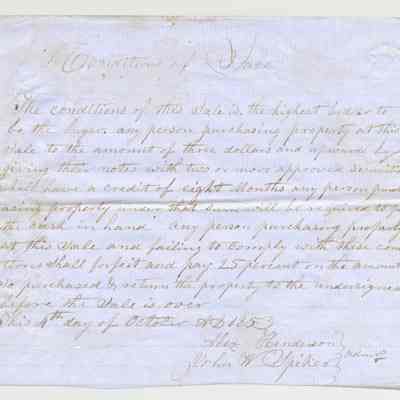 Conditions of Sale
The conditions of this Sale is the highest bidder to
be the buyer any person purchasing property at this
Sale to the amount of three dollars and upward by
giving their notes with two or more approved securit
shall have a credit of eight Months any person purch
asing property under that sum will be required to p
the cash in hand any person purchasing property
at this Sale and failing to comply with these con
tions shall forfeit and pay 25 percent on the amount
so purchased & return the property to the undersigned
before the Sale is over
This 4th day of October AD 1853
Alex Henderson
John W Spiker Admrs